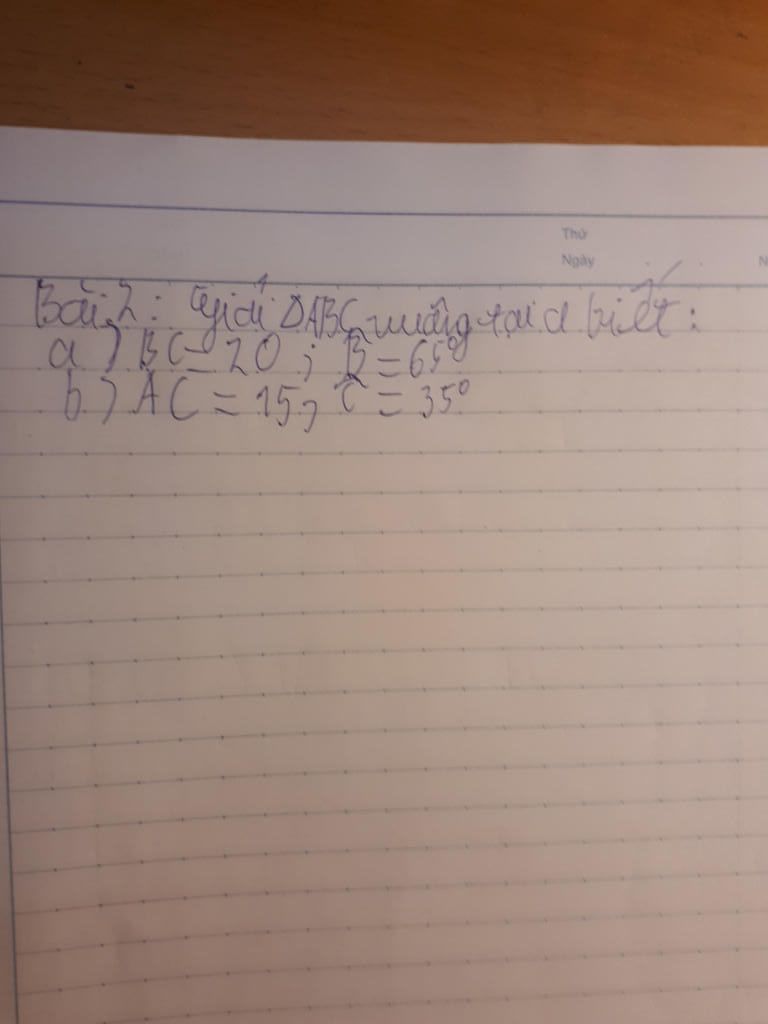 Thứ
Ngày
Bài 2: Giải ΔABC vuông tại A biết:
a) BC = 20; B̂ = 65°
b) AC = 15; Ĉ = 35°